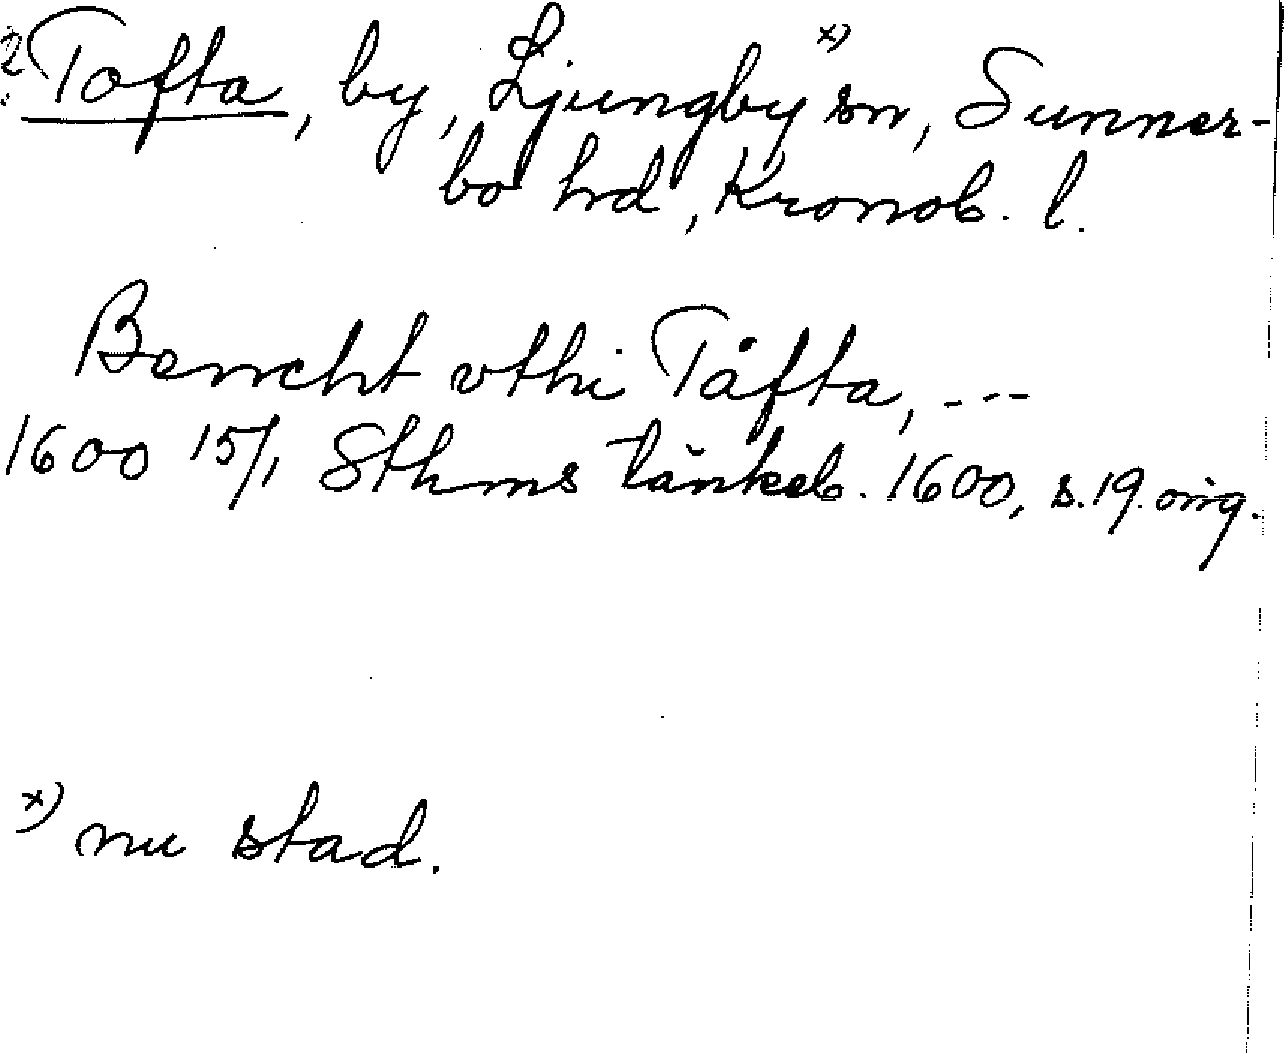 2. Tofta, by, Ljungby x) sn, Sunner-
bo hrd, Kronob. l.
Bencht vthi Tåfta, ---
1600 15/1 Sthms tänkeb. 1600, s. 19. orig.
x) nu stad.